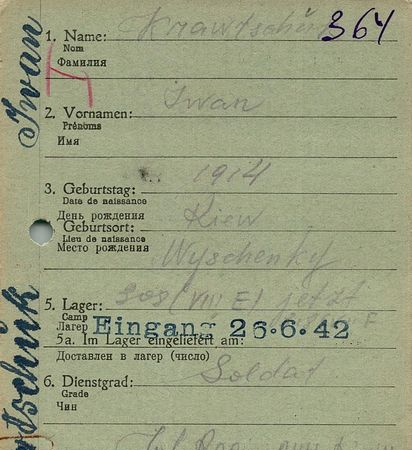 364
1. Name: Krawtschuk
Nom
Фамилия
Iwan
2. Vornamen: Iwan
Prénoms
Имя
3. Geburtstag: 1914
Date de naissance
День рождения
Geburtsort: Kiew
Lieu de naissance
Место рождения Wyschenky
5. Lager: 308 (VIII E) jetzt
Camp
Лагерь Eingang 26.6.42
5a. Im Lager eingeliefert am:
Доставлен в лагерь (число)
6. Dienstgrad: Soldat
Grade
Чин